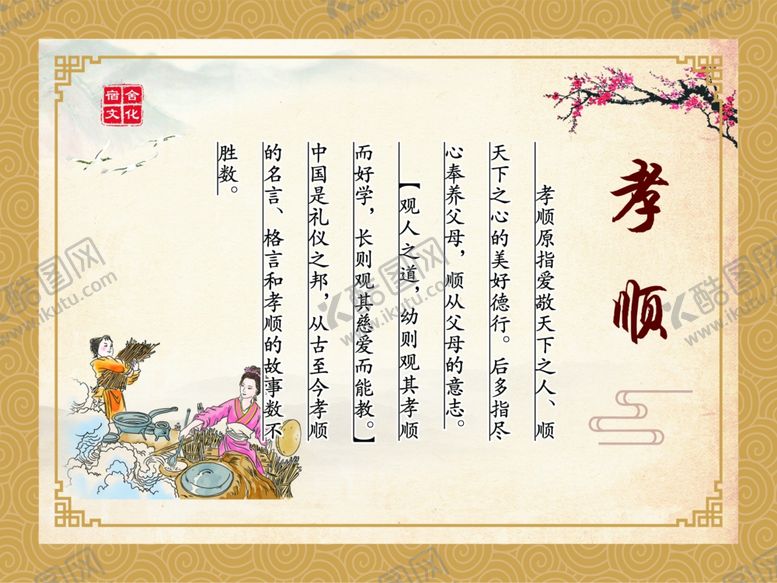 孝顺
孝顺原指爱敬天下之人、顺
天下之心的美好德行。后多指尽
心奉养父母，顺从父母的意志。
【观人之道，幼则观其孝顺
而好学，长则观其慈爱而能教。】
中国是礼仪之邦，从古至今孝顺
的名言、格言和孝顺的故事数不
胜数。
宿舍
文化
酷图网
www.ikutu.com